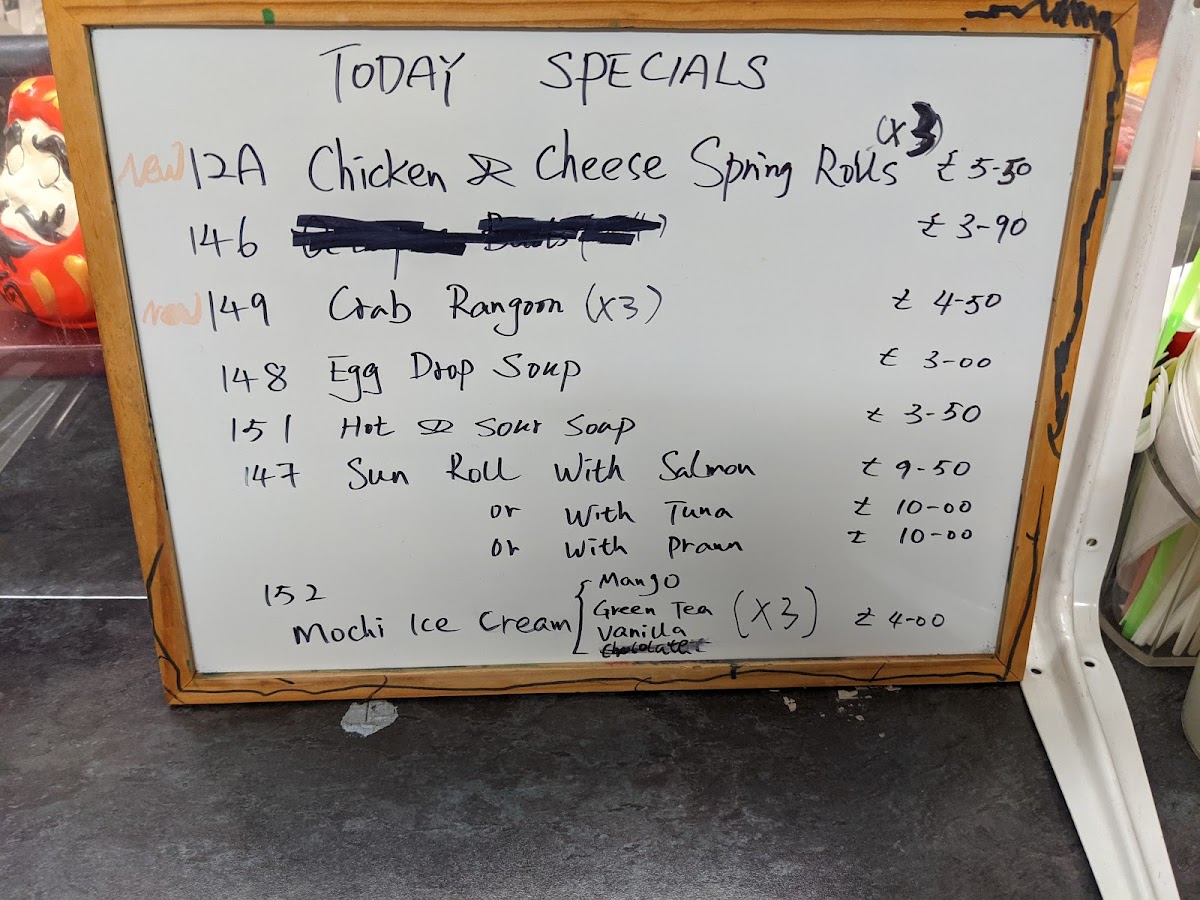 TODAY SPECIALS
new 12A Chicken & Cheese Spring Rolls (x3) £ 5-50
146 £ 3-90
new 149 Crab Rangoon (x3) £ 4-50
148 Egg Drop Soup £ 3-00
151 Hot & Sour Soap £ 3-50
147 Sun Roll With Salmon £ 9-50
or With Tuna £ 10-00
or With Prawn £ 10-00
152
Mochi Ice Cream (x3) £ 4-00
Mango
Green Tea
Vanilla
Chocolate